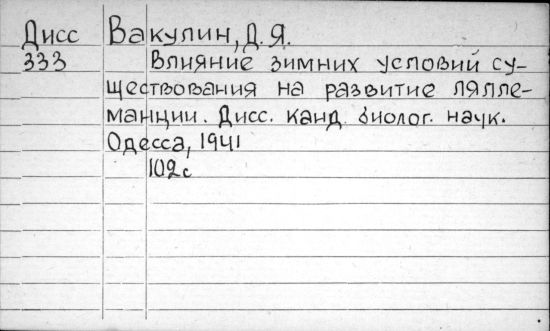 Дисс Вакулин, Д.Я.
333 Влияние зимних условий су-
ществования на развитие лялле-
манции. Дисс. канд. биолог. наук.
Одесса, 1941
102с